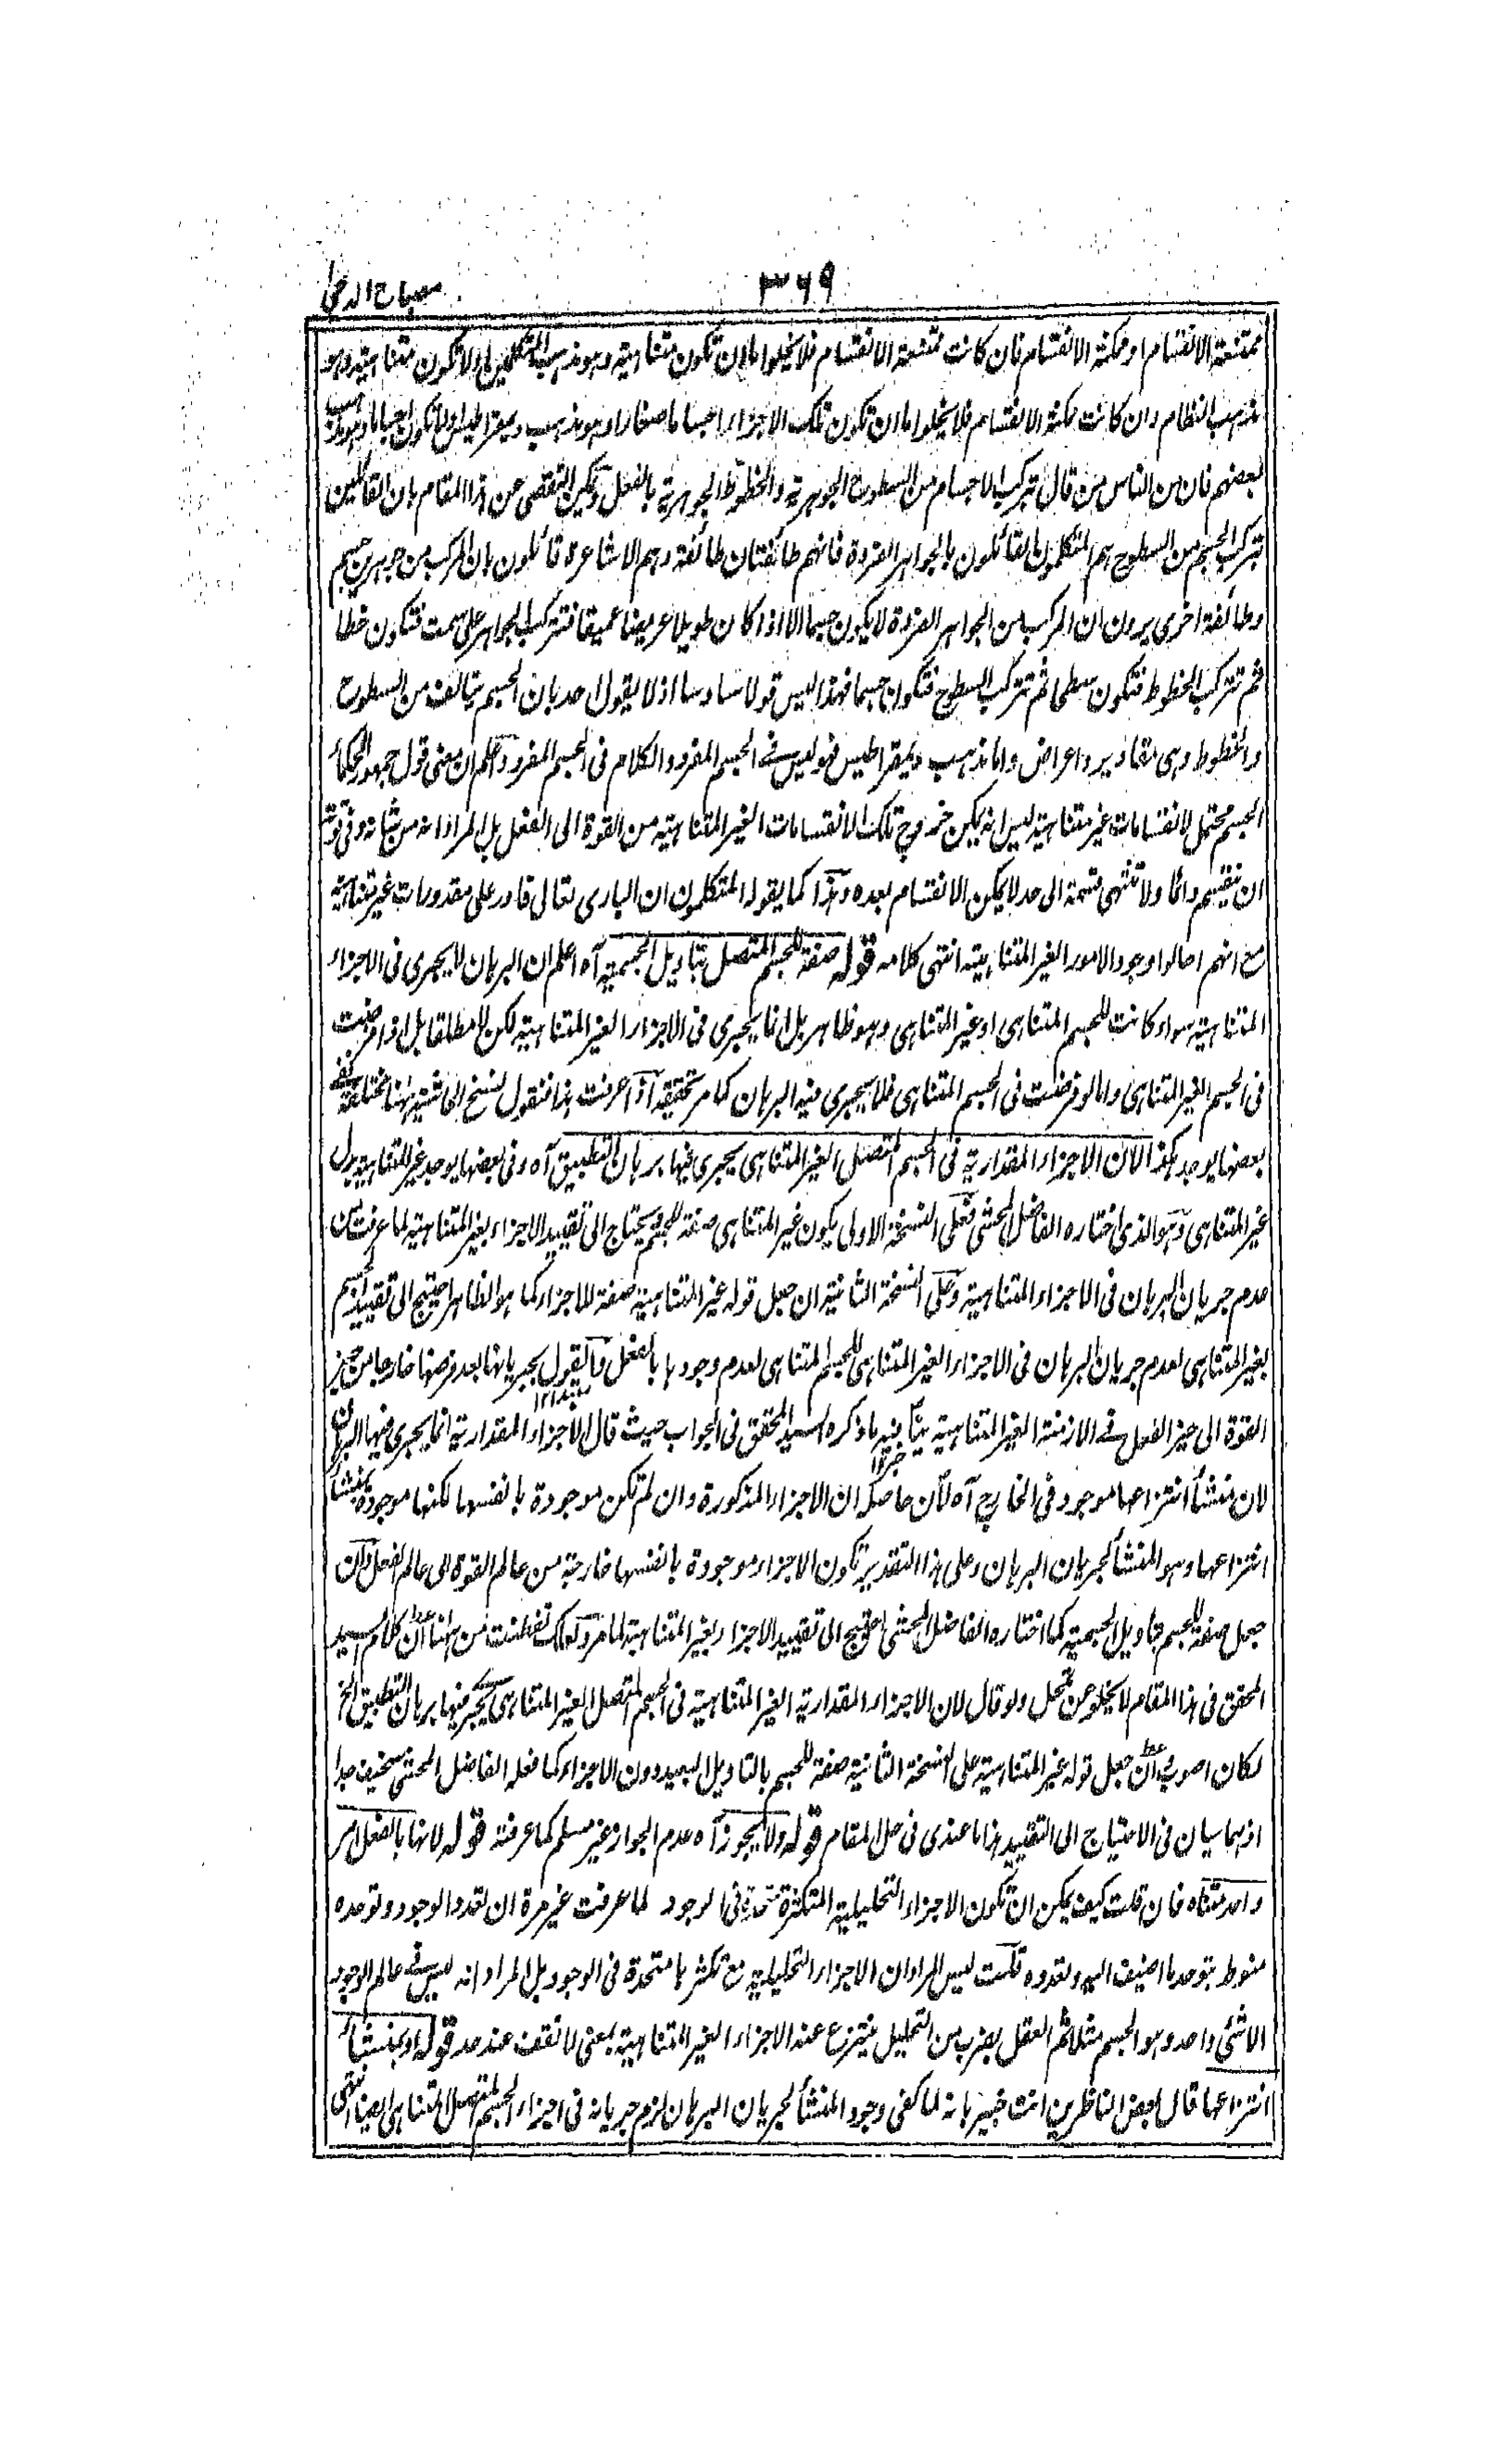 ۳۶۹
مصباح الدجى
ممتنعة الانقسام او ممكنة الانقسام فان كانت ممتنعة الانقسام فلا يخلوا اما ان تكون متناهية وهو مذهب المتكلمين او لا تكون متناهية وهو
مذهب النظام وان كانت ممكنة الانقسام فلا يخلوا اما ان تكون تلك الاجزاء اجساما صغارا وهو مذهب ديمقراطيس او لا تكون اجساما وهو مذهب
بعضهم فان من الناس من قال بتركب الاجسام من السطوح الجوهرية والخطوط الجوهرية بالفعل ويمكن التفصى عن هذا المقام بان القائلين
بتركب الجسم من السطوح هم المتكلمون القائلون بالجواهر الفردة فانهم طائفتان طائفة وهم الاشاعرة قائلون بان المركب من جوهرين جسم
وطائفة اخرى يرون ان المركب من الجواهر الفردة لا يكون جسما الا اذا كان طويلا عريضا عميقا فتتركب الجواهر على سمت فتكون خطا
ثم تتركب الخطوط فتكون سطحا ثم تتركب السطوح فتكون جسما فهذا ليس قولا سادسا اذ لا يقول احد بان الجسم يتالف من السطوح
والخطوط وهى مقادير واعراض واما مذهب ديمقراطيس فهو ليس فے الجسم المفرد والكلام فى الجسم المفرد واعلم ان معنى قول جمهور الحكماء
الجسم محتمل لانقسامات غير متناهية ليس انه يمكن خروج تلك الانقسامات الغير المتناهية من القوة الى الفعل بل المراد انه من شانه وفى قوته
ان ينقسم دائما ولا تنتهى قسمته الى حد لا يمكن الانقسام بعده وهذا كما يقول المتكلمون ان البارى تعالى قادر على مقدورات غير متناهية
مع انهم احالوا وجود الامور الغير المتناهية انتهى كلامه قوله صفة للجسم المتصل بتاويل الجسمية آه اعلم ان البرهان لا يجرى فى الاجزاء
المتناهية سواء كانت للجسم المتناهى او غير المتناهى وهو ظاهر بل انما يجرى فى الاجزاء الغير المتناهية لكن لا مطلقا بل اذا فرضت
فى الجسم الغير المتناهى واما لو فرضت فى الجسم المتناهى فلا يجرى فيه البرهان كما مر تحقيقه اذا عرفت هذا فنقول نسخ الحاشية ههنا مختلفة ففے
بعضها يوجد هكذا لان الاجزاء المقدارية فى الجسم المتصل الغير المتناهى يجرى فيها برهان التطبيق آه وفى بعضها يوجد غير المتناهية بدل
غير المتناهى وهو الذى اختاره الفاضل المحشى فعلى النسخة الاولى يكون غير المتناهى صفة للجسم ويحتاج الى تقييد الاجزاء بغير المتناهية لما عرفت من
عدم جريان البرهان فى الاجزاء المتناهية وعلى النسخة الثانية ان جعل قوله غير المتناهية صفة للاجزاء كما هو الظاهر احتيج الى تقييد الجسم
بغير المتناهى لعدم جريان البرهان فى الاجزاء الغير المتناهى للجسم المتناهى لعدم وجودها بالفعل والقول بجريانها بعد فرضها خارجا من حيز
القوة الى حيز الفعل فے الازمنة الغير المتناهية ينافيه ما ذكره السيد المحقق فى الجواب حيث قال الاجزاء المقدارية انما يجرى فيها البرهان
لان منشأ انتزاعها موجود فى الخارج آه لان حاصله ان الاجزاء المذكورة وان لم تكن موجودة بانفسها لكنها موجودة بمنشأ
انتزاعها وهو المنشأ لجريان البرهان وعلى هذا التقدير تكون الاجزاء موجودة بانفسها خارجة من عالم القوة الى عالم الفعل وان
جعل صفة للجسم بتاويل الجسمية كما اختاره الفاضل المحشى احتيج الى تقييد الاجزاء بغير المتناهية لما مر ولعلك تفطنت من ههنا ان كلام السيد
المحقق فى هذا المقام لا يخلو عن تمحل ولو قال لان الاجزاء المقدارية الغير المتناهية فى الجسم المتصل الغير المتناهى يجرى فيها برهان التطبيق الخ
لكان اصوب وان جعل قوله غير المتناهية على النسخة الثانية صفة للجسم بالتاويل البعيد دون الاجزاء كما فعله الفاضل المحشى سخيف جدا
اذ هما سيان فى الاحتياج الى التقييد هذا ما عندى فى حل المقام قوله ولا يجوز آه عدم الجواز غير مسلم كما عرفته قوله لانها بالفعل امر
واحد متناه فان قلت كيف يمكن ان تكون الاجزاء التحليلية المتكثرة متحدة فى الوجود لما عرفت غير مرة ان تعدد الوجود وتوحده
منوط بتوحد ما اضيف اليه وتعدده قلت ليس المراد ان الاجزاء التحليلية مع تكثرها متحدة فى الوجود بل المراد انه ليس فے عالم الوجود
الا شئ واحد وهو الجسم مثلا ثم العقل بضرب من التحليل ينتزع عنه الاجزاء الغير المتناهية بمعنى لا تقف عند حد قوله او بمنشأ
انتزاعها قال بعض الناظرين انت خبير بانه لما كفى وجود المنشأ لجريان البرهان لزم جريانه فى اجزاء الجسم المتصل المتناهى ايضا انتهى